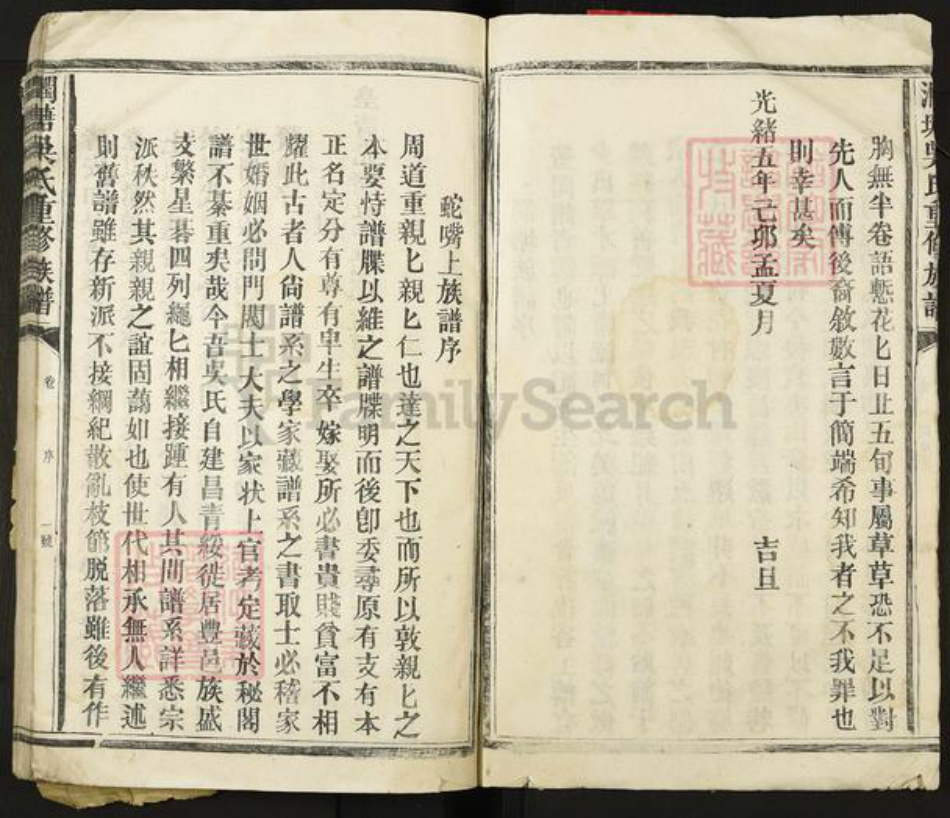 胸無半卷語慙花匕日止五旬事屬草草恐不足以對
先人而傳後裔敘數言于簡端希知我者之不我罪也
則幸甚矣
光緒五年己卯孟夏月 吉旦
吳氏重修族譜
蛇嘴上族譜序
周道重親匕親匕仁也達之天下也而所以敦親匕之
本要恃譜牒以維之譜牒明而後卽委尋原有支有本
正名定分有尊有卑生卒嫁娶所必書貴賤貧富不相
耀此古者人尙譜系之學家藏譜系之書取士必稽家
世婚姻必問門閥士大夫以家狀上官考定藏於秘閣
譜不綦重矣哉今吾吳氏自建昌青綏徙居豐邑族盛
支繁星碁四列繩匕相繼接踵有人其間譜系詳悉宗
派秩然其親親之誼固藹如也使世代相承無人繼述
則舊譜雖存新派不接綱紀散亂枝節脫落雖後有作
澗塘吳氏重修族譜
卷 序 一號
FamilySearch